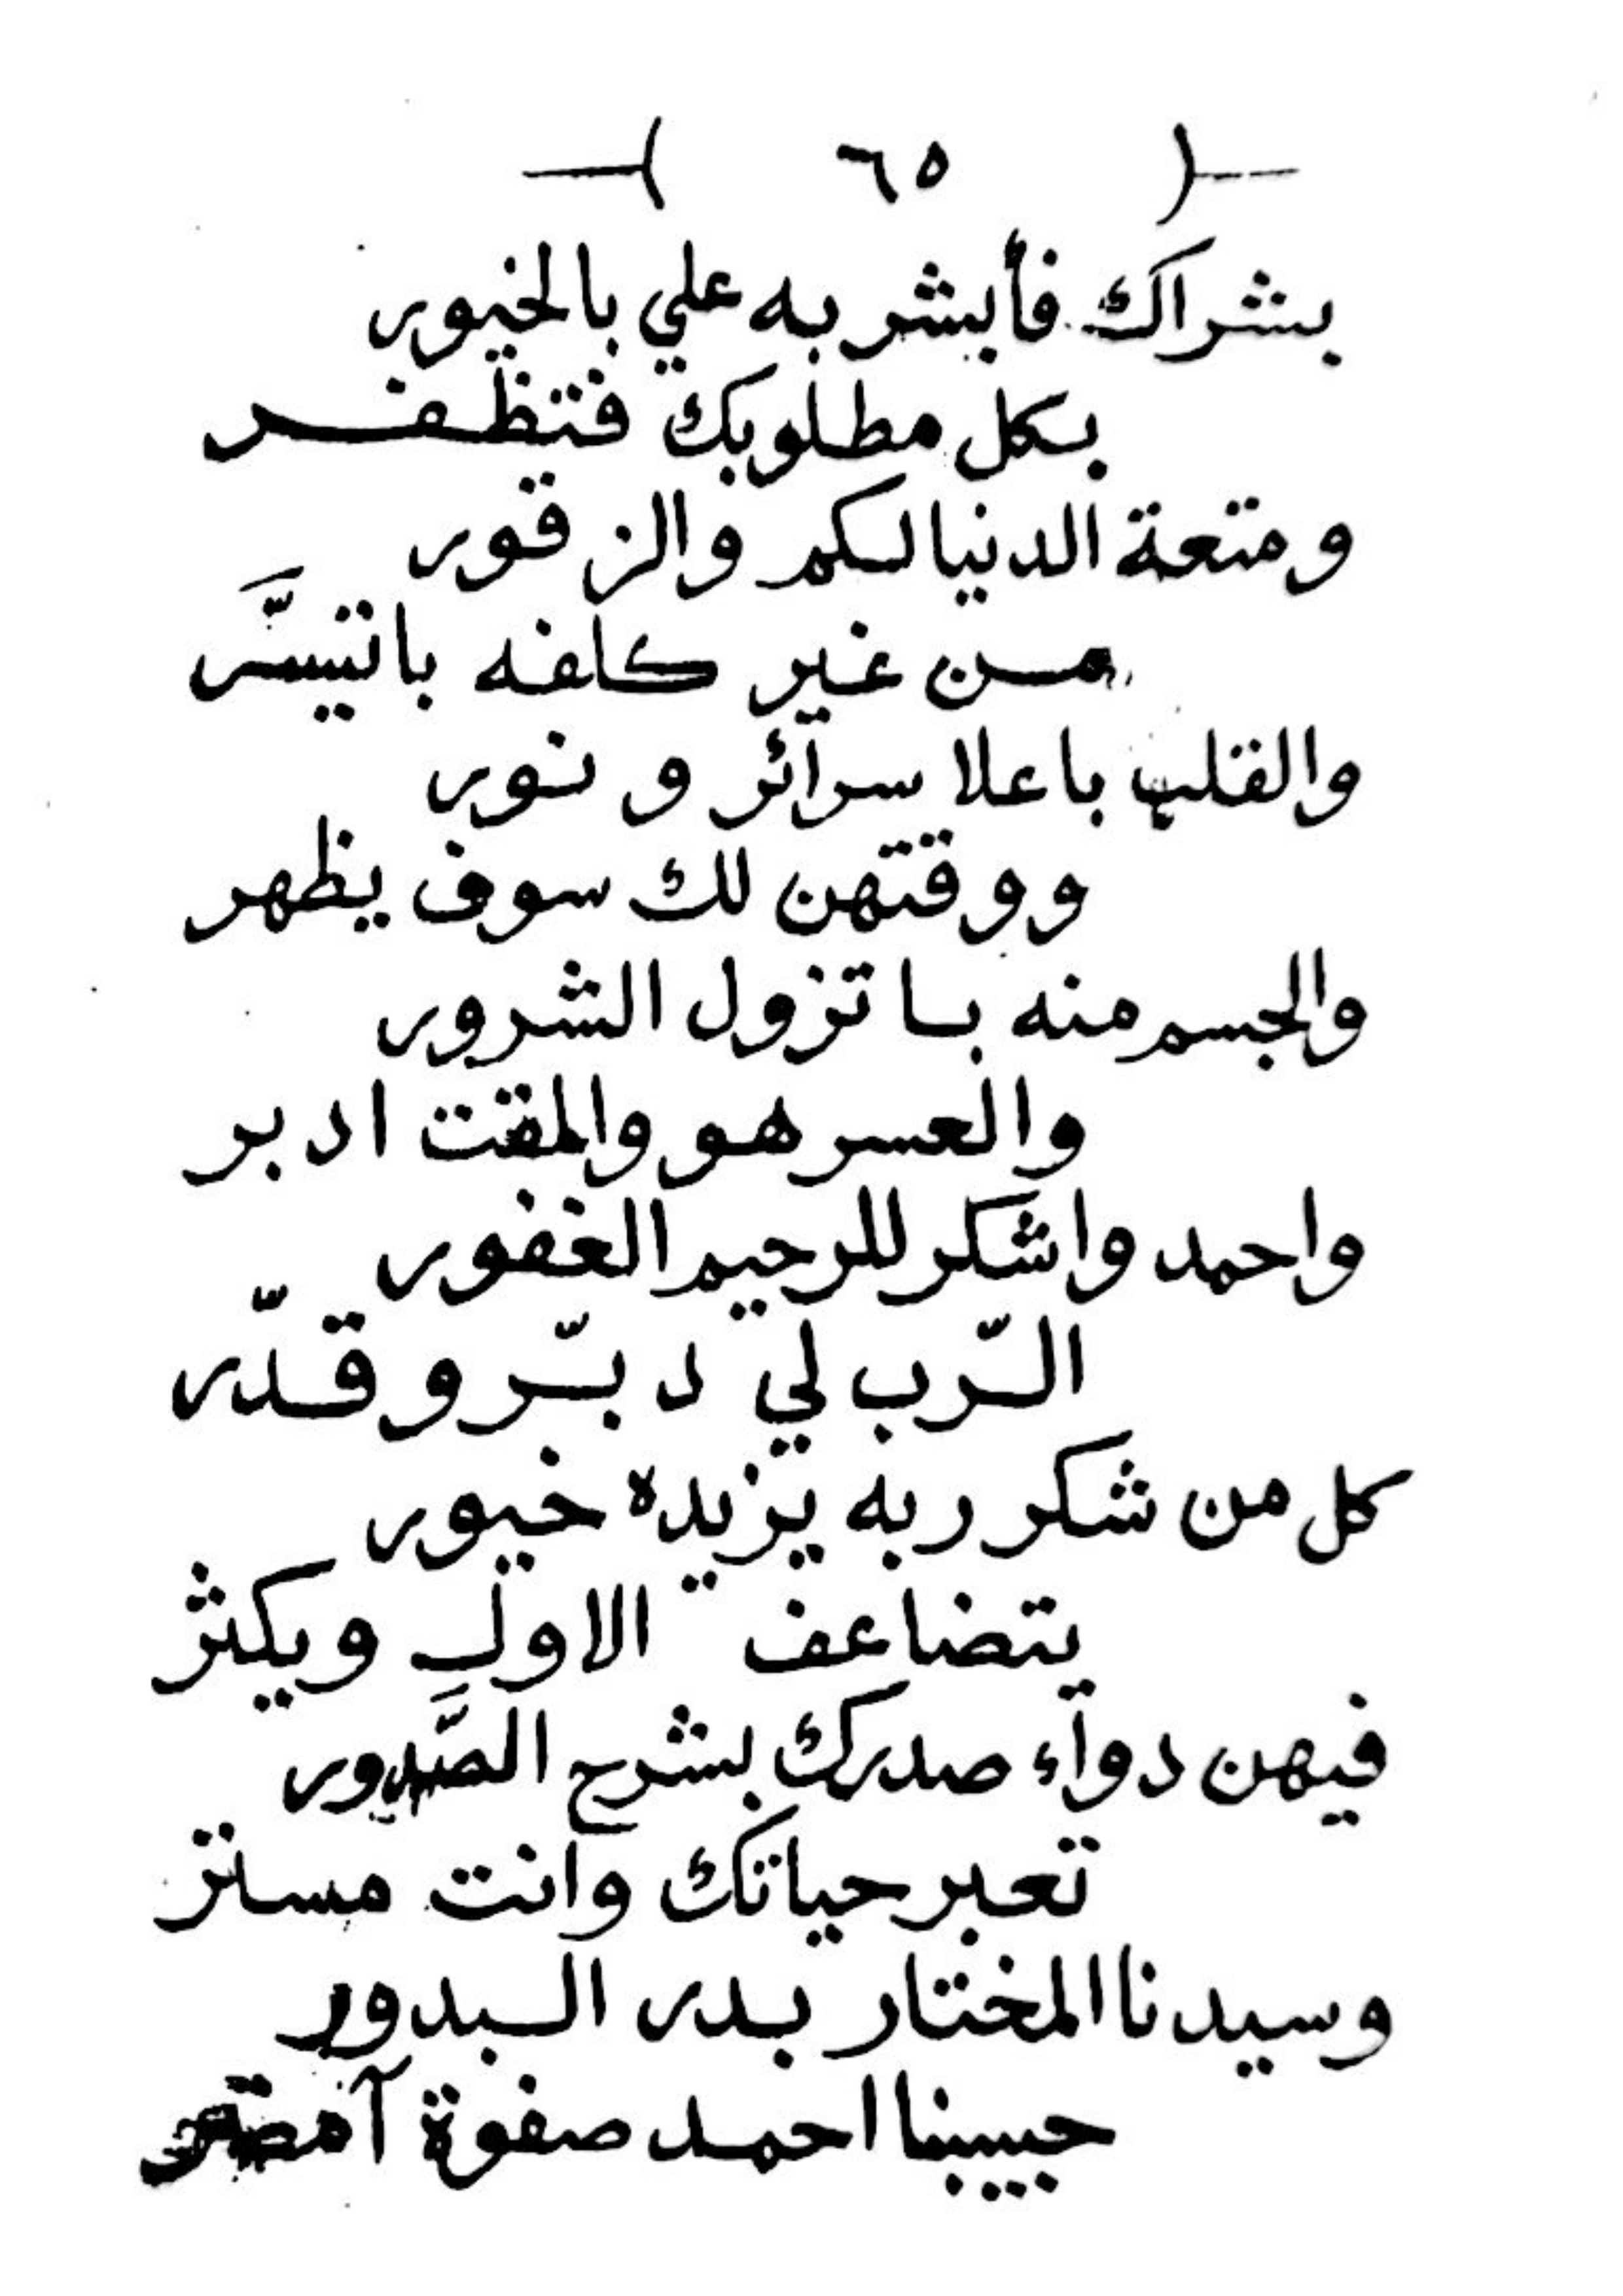 ( ٦٥ )
بشراك فأبشر به علي بالخيور
بكل مطلوبك فتظفر
ومتعة الدنيا لكم والزقور
من غير كلفه باتيسَّر
والقلب باعلا سرآئر ونور
ووقتهن لك سوف يظهر
والجسم منه باتزول الشرور
والعسر هو والمقت ادبر
واحمد واشكر للرحيم الغفور
الرّب لي دبّر وقدّر
كل من شكر ربه يزيده خيور
يتضاعف الاول ويكثر
فيهن دوآء صدرك بشرح الصَّدور
تعبر حياتك وانت مستر
وسيدنا المختار بدر البدور
حبيبنا احمد صفوة آمضر